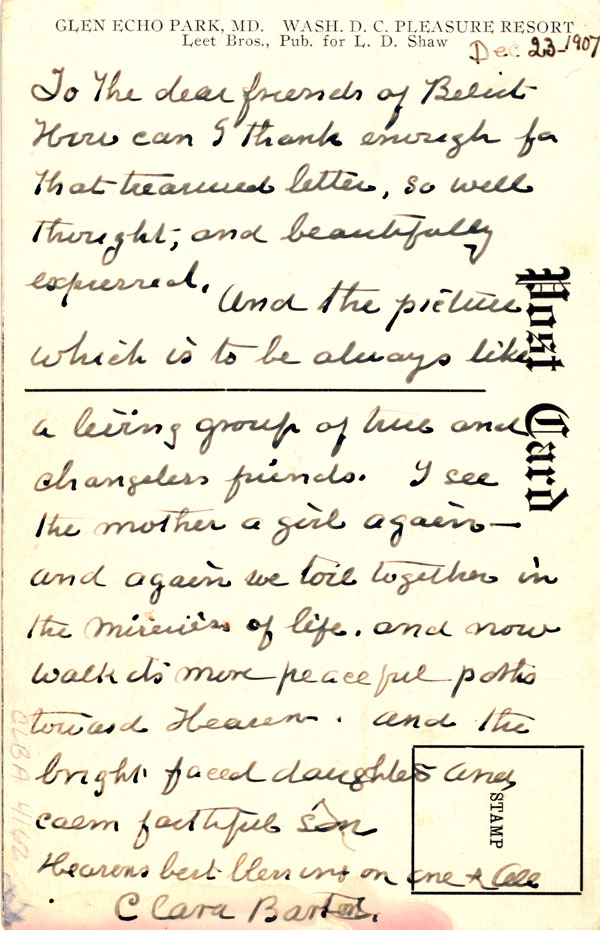 GLEN ECHO PARK, MD. WASH. D. C. PLEASURE RESORT
Leet Bros., Pub. for L. D. Shaw
Dec 23-1907
To the dear friends of Beloit
How can I thank enough for
that treasured letter, so well
thought, and beautifully
expressed. And the picture
Post Card
which is to be always like
a living group of true and
changeless friends. I see
the mother a girl again—
and again we toil together in
the miseries of life. and now
walk its more peaceful paths
toward Heaven. and the
bright faced daughters and
calm faithful son
STAMP
Heavens best blessing on one & all
Clara Barton.
CLBA 4162